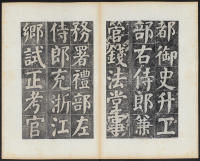 都御史升工
部右侍郎兼
管錢法堂事
務署禮部左
侍郎充浙江
鄉試正考官